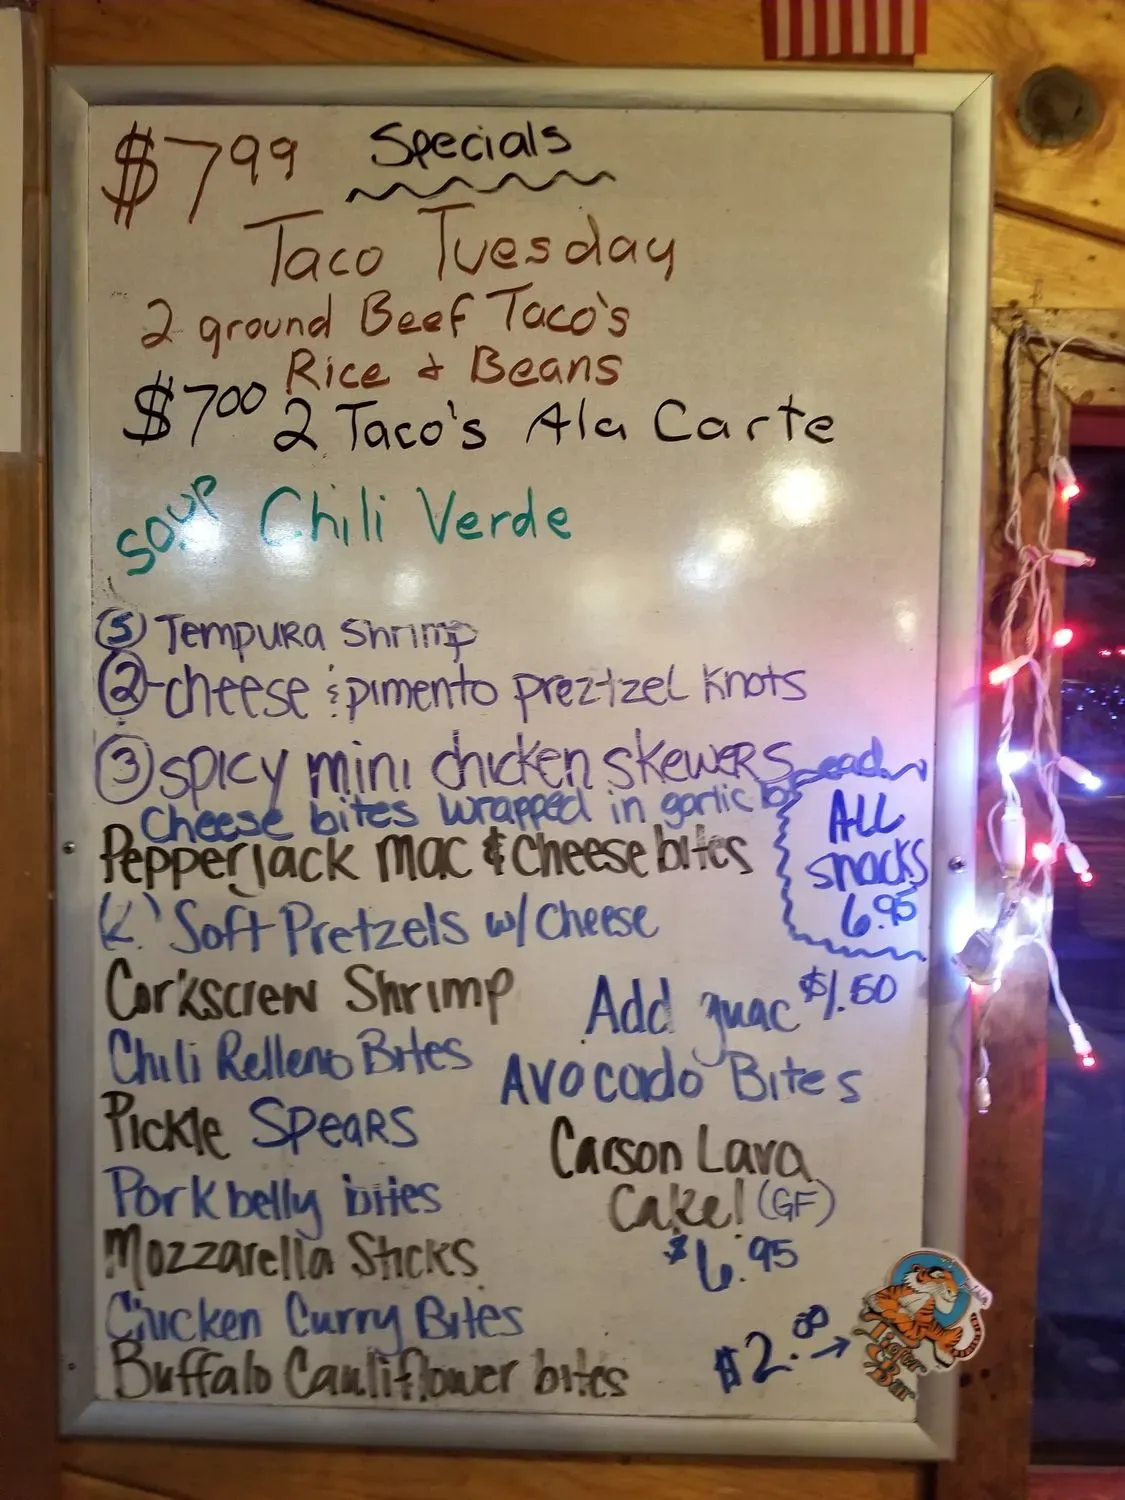 $7.99 Specials
Taco Tuesday
2 ground Beef Taco's
Rice & Beans
$7.00 2 Taco's Ala Carte
Soup Chili Verde
⑤ Tempura Shrimp
②-cheese & pimento preztzel knots
③ spicy mini chicken skewers
Cheese bites wrapped in garlic bread
Pepperjack mac & cheese bites
ALL
snacks
6.95
Soft Pretzels w/ Cheese
Corkscrew Shrimp
Add guac $1.50
Chili Relleno Bites
Avocado Bites
Pickle Spears
Carson Lava
Cake! (GF)
$6.95
Pork belly bites
Mozzarella Sticks
Chicken Curry Bites
Buffalo Cauliflower bites
$2.00 →
Tiger
Bar